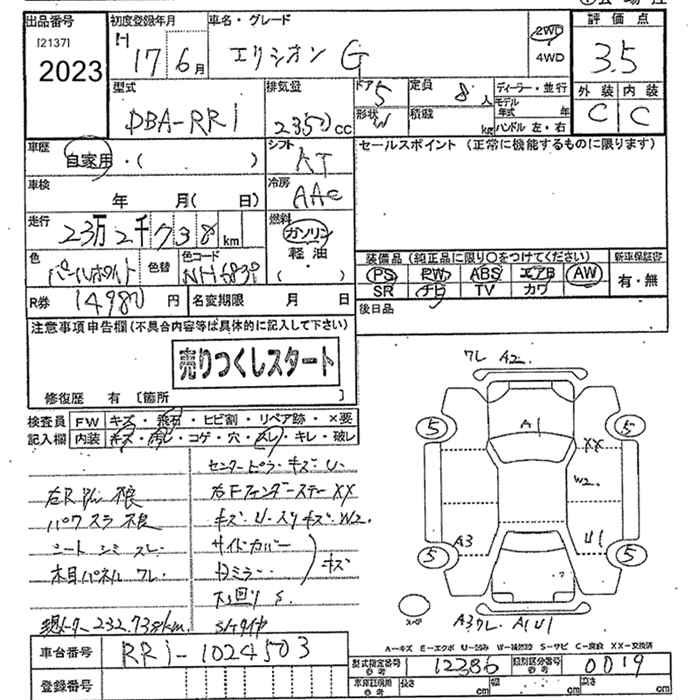 出品番号 初度登録年月 車名・グレード 評価点
[2137] H 17 6月 エリシオン G 2WD 3.5
2023 4WD
型式 排気量 ドア 5 定員 8人 ディーラー・並行 外装 内装
DBA-RR1 2350cc 形状 W 積載 kg モデル年式 年 C C
ハンドル 左・右
車歴 自家用・( ) シフト AT セールスポイント (正常に機能するものに限ります)
車検 年 月( 日) 冷房 AAC
走行 23万2千738km 燃料 ガソリン
軽油
( )
色 パールホワイト 色替 色コード NH683P 装備品 (純正品に限り○をつけてください) 新車保証書
PS PW ABS エアB AW 有・無
R券 14980円 名変期限 月 日 SR ナビ TV カワ
後日品
注意事項申告欄(不具合内容等は具体的に記入して下さい)
売りつくしスタート
修復歴 有 [箇所 ]
検査員 FW キズ・飛石・ヒビ割・リペア跡・×要
記入欄 内装 キズ・汚レ・コゲ・穴・スレ・キレ・破レ
センターピラーキズ・U
右R 右Fフェンダーステー XX
パワスラ不良 キズ・U・スリキズ・W2.
シート シミ スレ サイドカバー
木目パネル ワレ ミラー キズ
下回り S.
現メーター 232,738km. S/タイヤ
ワレ A2.
A1
5 5
XX
W2.
A3 U1
5 5
スペア
A3ワレ A1U1
A-キズ E-エクボ U-凹み W-補修跡 S-サビ C-腐食 XX-交換済
車台番号 RR1-1024503 型式指定番号 12386 類別区分番号 0019
登録番号 長さ cm 幅 cm 高さ cm